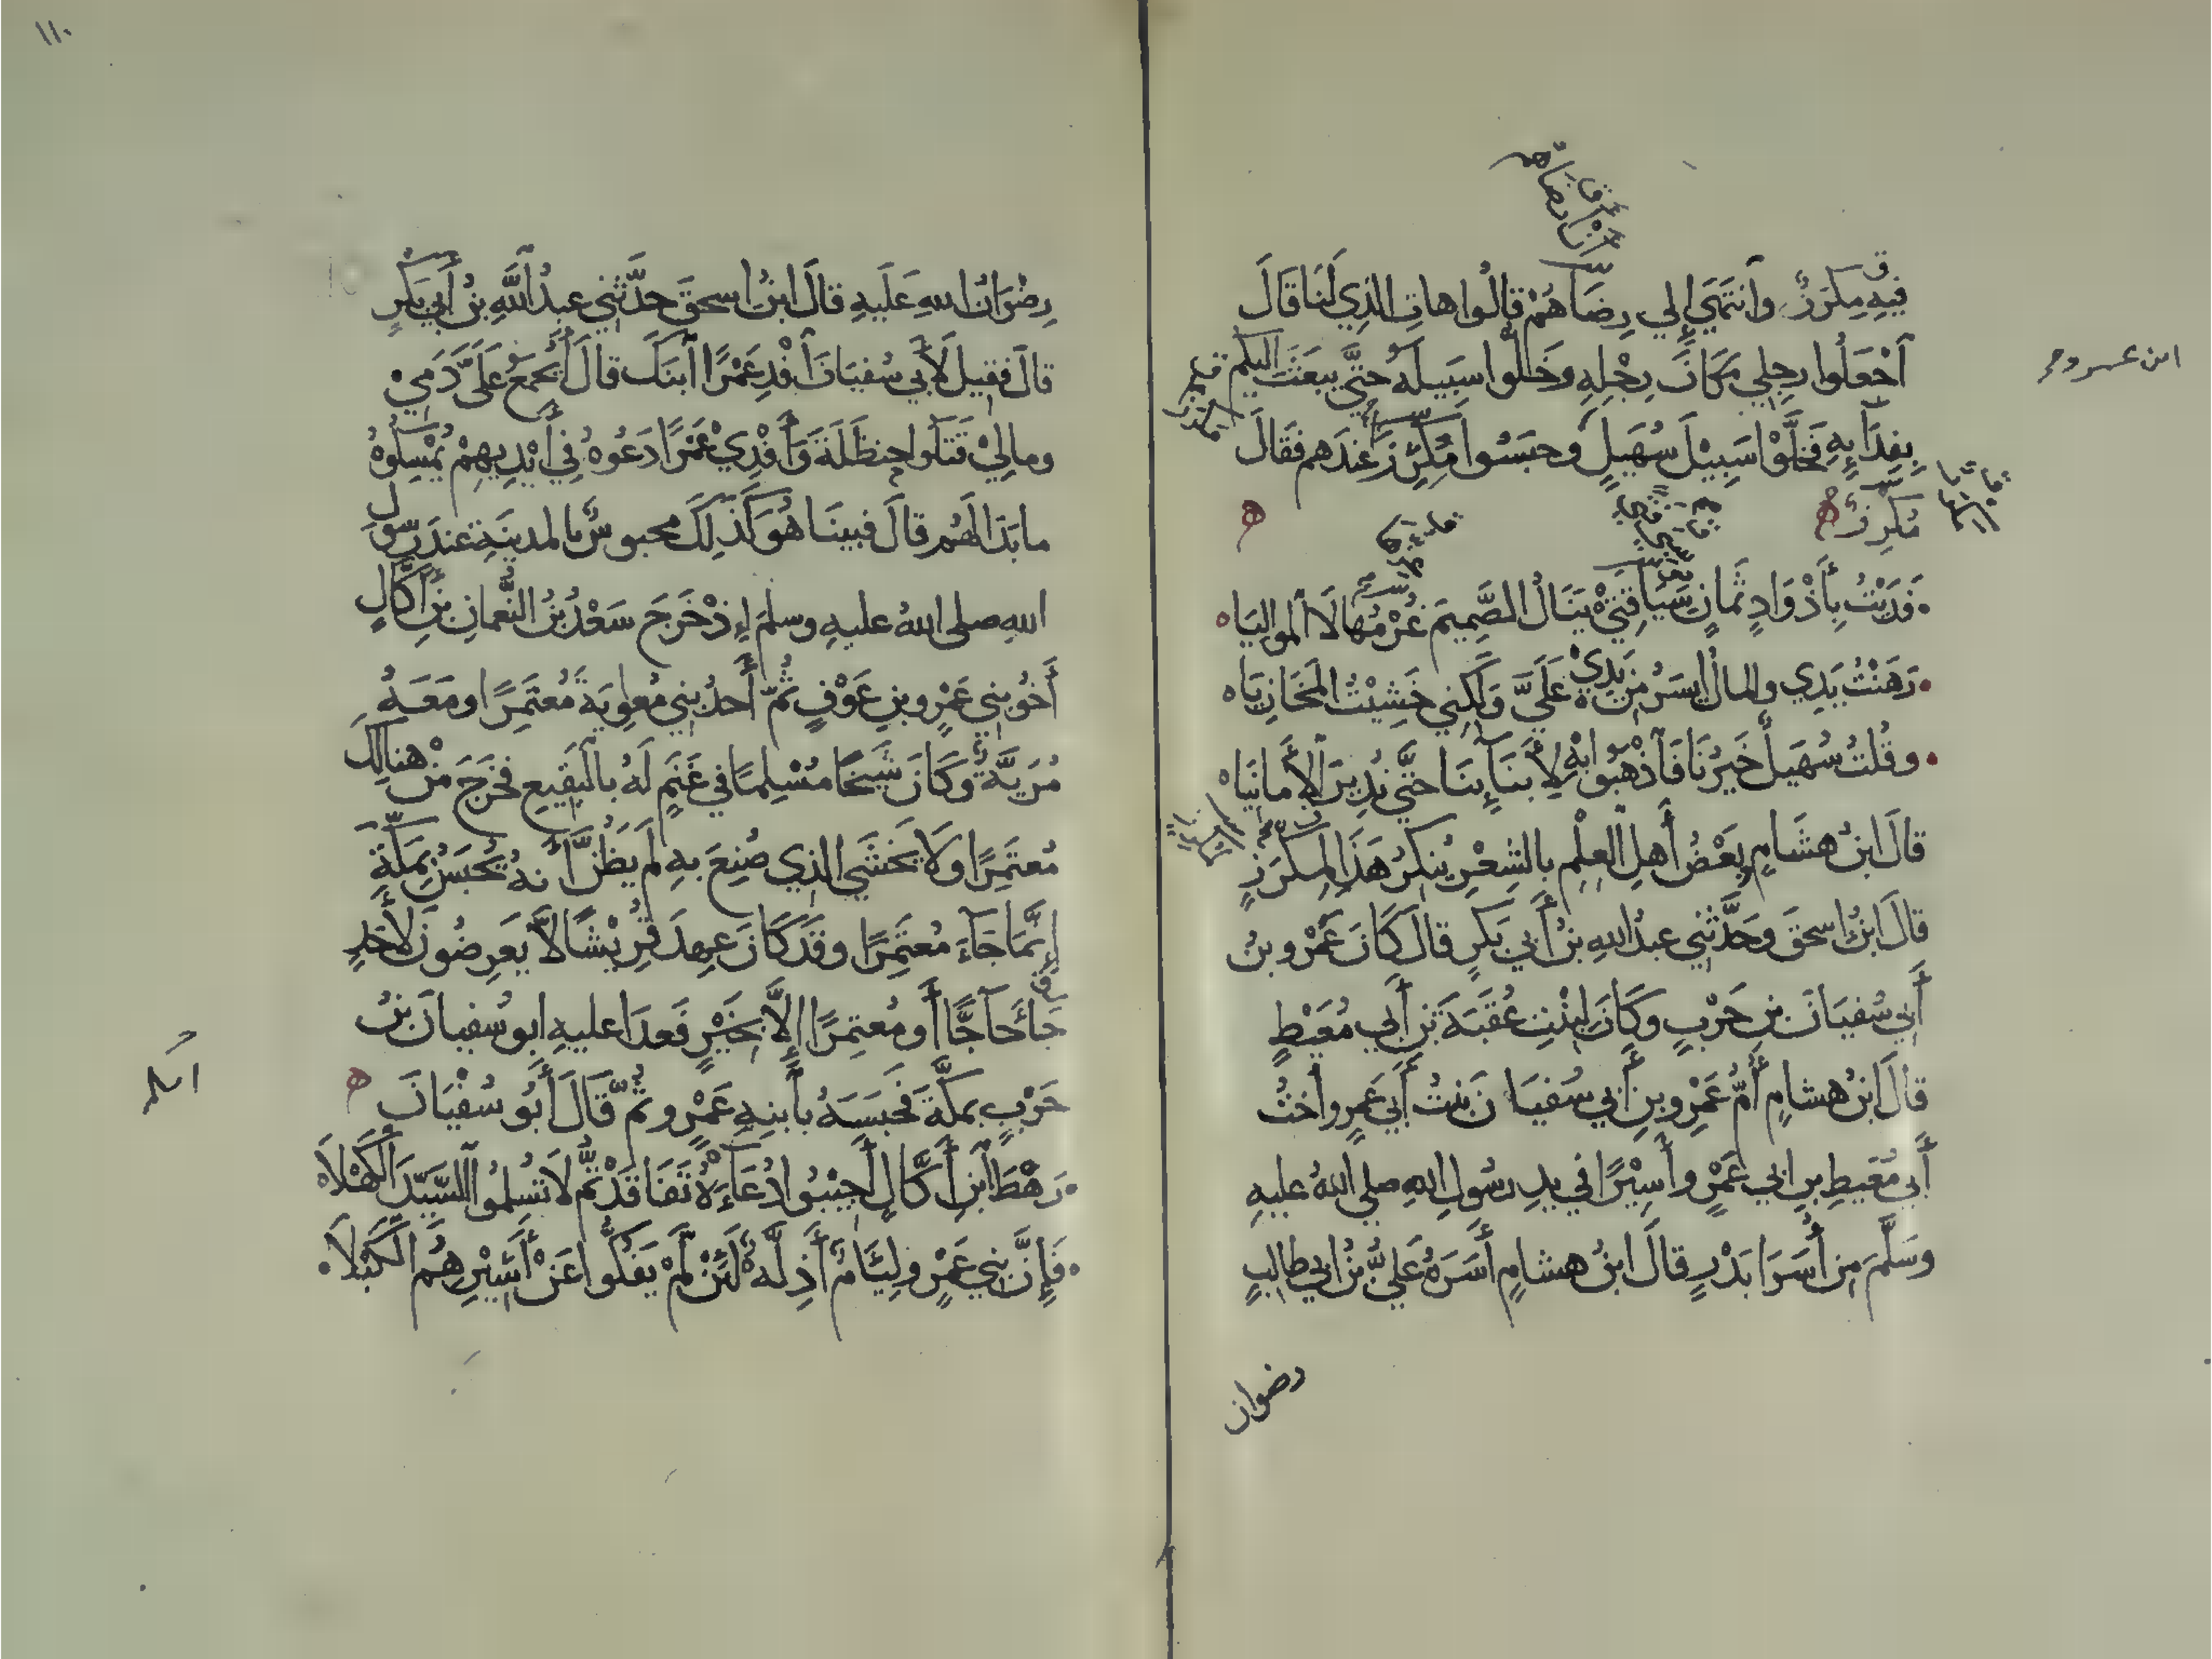 فِيهِ مِكرَزٌ وانتَهَي إلي رِضَاهُمْ قالُوا هاتِ الذِي لَنَا قَالَ
آجْعَلُوا رِجلِي مَكَانَ رِجْلِهِ وَخَلُّوا سَبِيلَهُ حتَّي يبعَثَ اليكُم
بِفِدَآيِهِ فَخَلَّوْا سَبِيْلَ سُهَيلٍ وحبَسُوا مِكرَزًا عِندَهم فَقَالَ
مكرزٌ
فَدَيْتُ بِأَذْوَادٍ ثَمَانٍ سَبَا فَتيً يَنَالُ الصَّمِيمَ غُرْمُهَا لَا المواليَا
رَهَنْتُ يَدِي والمالُ ايسَرُ مِن يَدِيْ عَلَيَّ وَلَكِنِي خَشِيْتُ المَخَازِيَا
وقُلتُ سُهَيلٌ خَيرُنَا فَآذْهَبُوا بِهِ لِأَبنَآئِنَا حتَّي نُدِيرَ الأَمانِيَا
قالَ ابنُ هشَامٍ وبَعْضُ أَهلِ العِلْمِ بالشِعْرِ يُنكِرُ هَذَا لِمِكرَزٍ
قالَ ابنُ اسحقَ وحَدَّثَنِي عبدُ اللهِ بنُ أَبي بَكرٍ قالَ كَانَ عَمْرُو بنُ
أَبي سُفيَانَ بنِ حَرْبٍ وكَانَ لبِنْتِ عُقبَةَ بنِ أَبي مُعَيْطٍ
قالَ ابنُ هشامٍ أُمُّ عَمْرِو بنِ أَبي سُفيَانَ بنتُ أَبي عَمرٍو وأختُ
أَبي مُعَيطِ بنِ ابي عَمْرٍو أَسِيْرًا في يدِ رسُولِ اللهِ صلي اللهُ عليهِ
وَسَلَّمَ مِن أُسَرَا بَدْرٍ قالَ ابنُ هشامٍ أَسَرَهُ عَلِيُّ بنُ ابي طالبٍ
رضوان
١١٠
رِضْوَانُ اللهِ عَلَيهِ قالَ ابنُ اسحقَ حدَّثَنِي عبدُ اللَّهِ بنُ أَبي بَكرٍ
قالَ فقيلَ لأَبي سُفيَانَ آفْدِ عَمْرًا آبنَكَ قالَ أَيُجمَعُ عَلَيَّ دَمِيْ
ومالِيْ قَتَلُوا حنظَلَةَ وَأَفْدِيْ عَمْرًا دَعُوهُ فِي أَيْدِيهِمْ يُمْسِكُوهُ
ما بَدَا لَهُم قالَ فبينَا هُوَ كَذَلِكَ محبوسٌ بالمدينَةِ عندَ رسُولِ
اللهِ صلى اللهُ عليهِ وسلمَ إذْ خَرَجَ سَعْدُ بنُ النُّعمانِ بنِ أَكَّالٍ
أَخُو بنِي عَمْرِو بنِ عَوْفٍ ثُمَّ أَحدُ بني مُعاوِيَةَ مُعتَمِرًا ومَعَهُ
مُرَيَّةٌ وكَانَ شَيخًا مُسْلِمًا في غَنَمٍ لَهُ بالبَقيعِ فخَرَجَ مِنْ هنالِكَ
مُعتَمِرًا ولَا يَخشَي الذِي صُنِعَ بهِ لَم يَظُنَّ أَنهُ يُحْبَسُ بِمَكَّةَ
إنَّمَا جَآءَ مُعتَمِرًا وقَد كَانَ عهِدَ قُرَيْشًا لاَّ يَعرِضُونَ لأَحَدٍ
جَآءَ حَآجًّا أَو مُعتمِرًا إلاَّ بِخَيْرٍ فَعدَا عليهِ ابو سُفيانَ بنُ
حَرْبٍ بمكَّةَ فَحَبَسَهُ بآبنِهِ عَمْرٍو ثمَّ قَالَ أَبُو سُفْيَانَ
أَرَهْطَ آبنِ أَكَّالٍ أَجِيْبُوا دُعَآءَهُ تَفَاقَدْتُمُ لَا تُسلِمُوا السَّيِّدَ الكَهْلَا
فَإِنَّ بَنِي عَمْرٍو لِئَامٌ أَذِلَّةٌ لَئِنْ لَمْ يَفُكُّوا عَنْ أَسِيْرِهُمُ الكَبْلَا